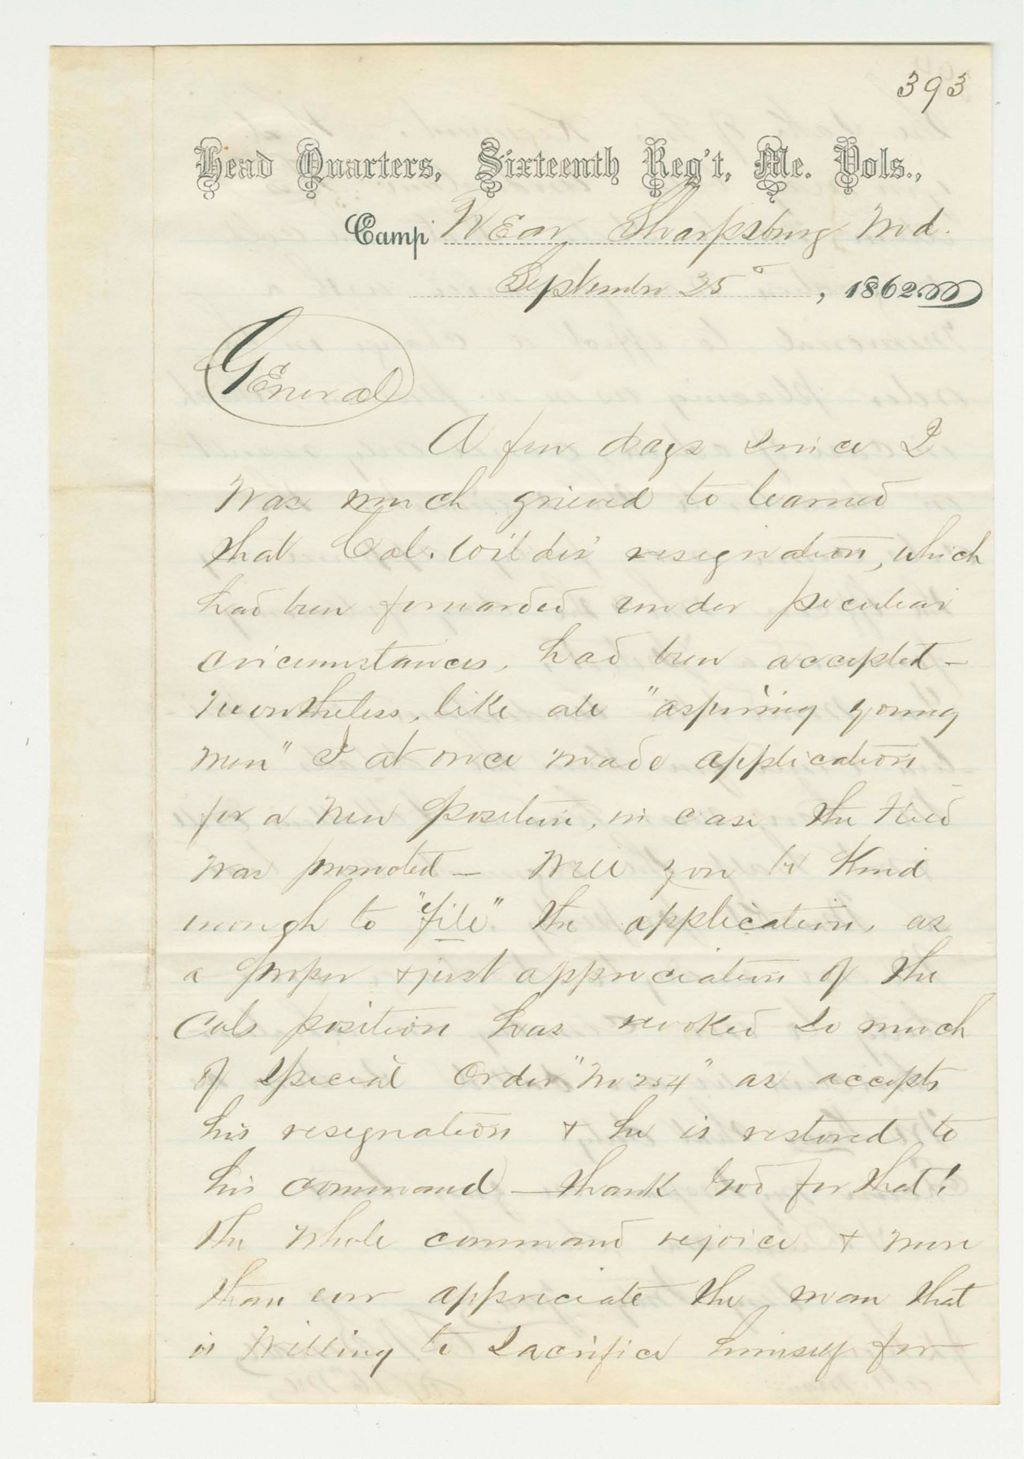 393
Head Quarters, Sixteenth Reg't, Me. Vols.,
Camp Near Sharpsburg Md.
September 25°, 1862
General
A few days since I
was much grieved to learned
that Col. Wildes' resignation, which
had been forwarded under peculiar
circumstances, had been accepted -
nevertheless, like all "aspiring young
men" I at once made application
for a new position, in case the
was promoted - Will you be kind
enough to "file" the application, as
a proper & just appreciation of the
Cols position has revoked so much
of Special Order "No 254" as accepts
his resignation & he is restored to
his command - thank God for that!
The whole command rejoice & more
than ever appreciate the man that
is willing to sacrifice himself for